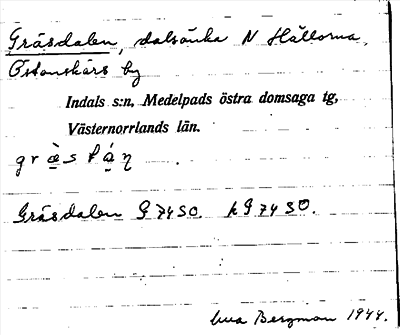 Gräsdalen, dalsänka N Hällorna,
Östanskärs by
Indals s:n, Medelpads östra domsaga tg,
Västernorrlands län.
Gräsdalen G 74 SO. kG 74 SO.
Bergman 1944.